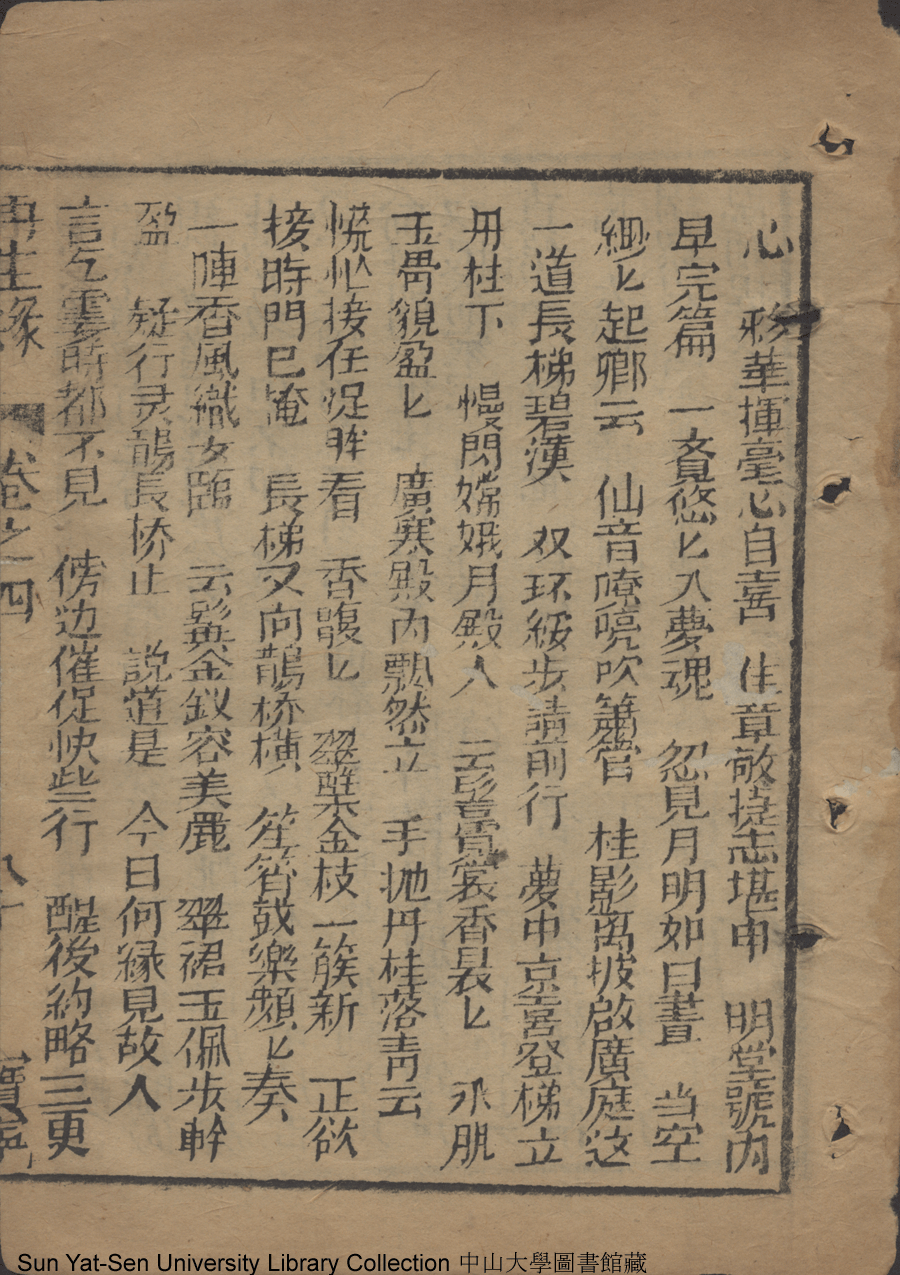 心　彩華揮毫心自喜　佳章敏捷志堪申　明堂號內
早完篇　一寢悠匕入夢魂　忽見月明如日晝　当空
緲匕起鄉云　仙音嘹喨吹簫管　桂影离披啟廣庭这
一道長梯碧漢　双环緩步請前行　夢中京喜登梯立
丹桂下　慢閃嫦娥月殿人　云髻霓裳香裊匕　氷肌
玉骨貌盈匕　廣寒殿內飄然立　手抛丹桂落青云
慌忙接在定眸看　香馥匕　翠蘂金枝一簇新　正欲
接時門已掩　長梯又向鵲桥横　笙簧鼓樂頻匕奏
一陣香風織女臨　云鬓金釵容美麗　翠裙玉佩步軿
盈　疑行灵鵲長桥止　説道是　今日何縁見故人
言乞霎時都不見　傍边催促快些行　醒後約略三更
再生緣　卷之四　八十　寶寧
Sun Yat-Sen University Library Collection 中山大學圖書館藏